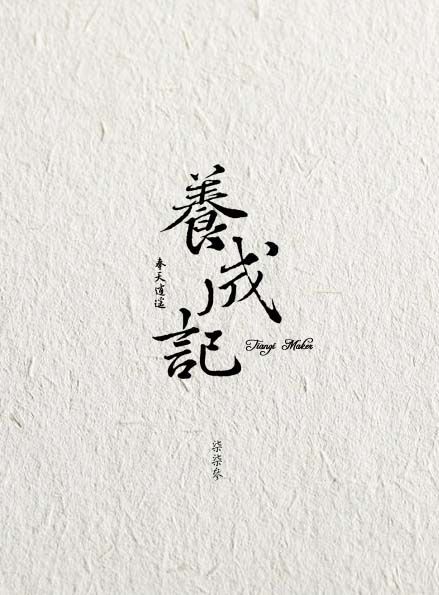 養成記
奉天逍遙
Tianqi Maker
柒柒參